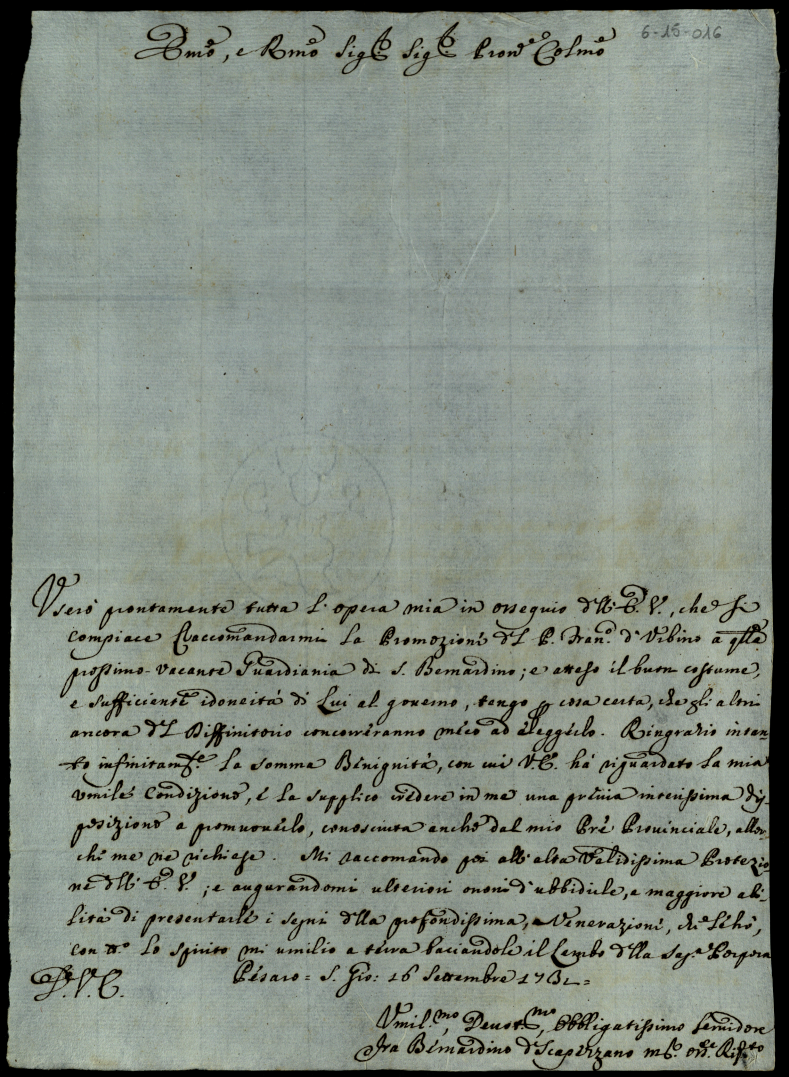 6-15-016
Emo, e Rmo Sigr Sigr Pron̄e Colmo
Userò prontamente tutta l'opera mia in ossequio dell'E. V., che si
compiace raccomandarmi la Promozione del P. Franco d'Urbino a qlla
prossimo-vacante Guardiania di S. Bernardino; e atteso il buon costume,
e sufficiente idoneità di Lui al governo, tengo p cosa certa, che gli altri
ancora del Diffinitorio concorreranno meco ad eleggerlo. Ringrazio intan-
to infinitamte la somma Benignità, con cui V.E. hà riguardato la mia
umile Condizione, e la supplico credere in me una previa interissima dis-
posizione a promuoverlo, conosciuta anche dal mio Pre Provinciale, allor-
che me ne richiese. Mi raccomando poi all'alta validissima Protezio-
ne dell'E. V.; e augurandomi ulteriori onori d'ubbidirle, e maggiore abi-
lità di presentarle i segni della profondissima Venerazione, che Le hò,
con tto lo spirito mi umilio a terra baciandole il Lembo della Sagra Porpora
Di V. E. Pesaro = S. Gio: 16 Settembre 1732 =
Umilmo, Devotmo, Obbligatissimo Servidore
Fra Bernardino da Scapezzano Mre Osste Rifto